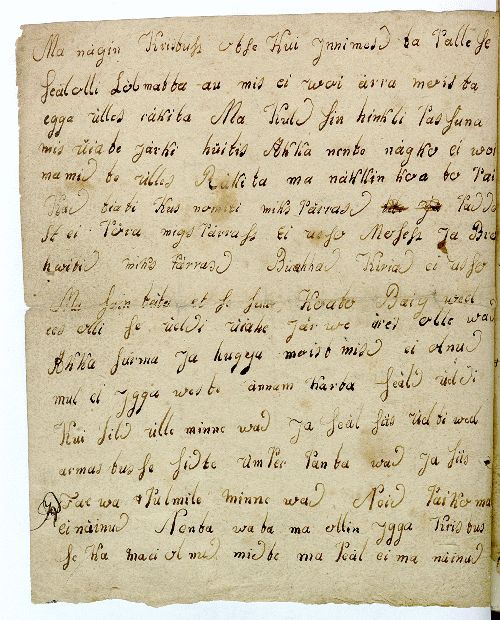 Ma nägin Kristussi otse Kui Jnnimesd ta Palle se
seäl olli Löbmatta au mis ei woi ärra moista
egga ülles räkita Ma Kuld sin hinkli Passuna
mis üiate järki hüitis Akka nente nägko ei woi
ma mid te ülles Räkita ma näkllin koa to Pai
Kad teati Kus nomiti miks Pärrasd Padd
st ei Pöra migs Pärrast ei usso Mosest Ja Bro
hwitid miks Pärrasd Buhhad Kiriad ei usso
Ma sain teäta et se suur Koabo Baig wad
ees olli se üeldi üiahe Järwe wees olle wad
Akka surma Ja hugeya moistmisd ei olnud
mul ei Jgga weste ännam Karta seäl üldi
Kui sild ülle minne wad Ja seäl siis üld ti wad
armas tus se sidte ümPer Panta wad Ja siis
Taewa Pulmile minne wad Noid Paiko ma
ei näinud Nenta wata ma ollin Jgga Kristus
se Ka maei olnud midte ma Peäl ei ma näinud